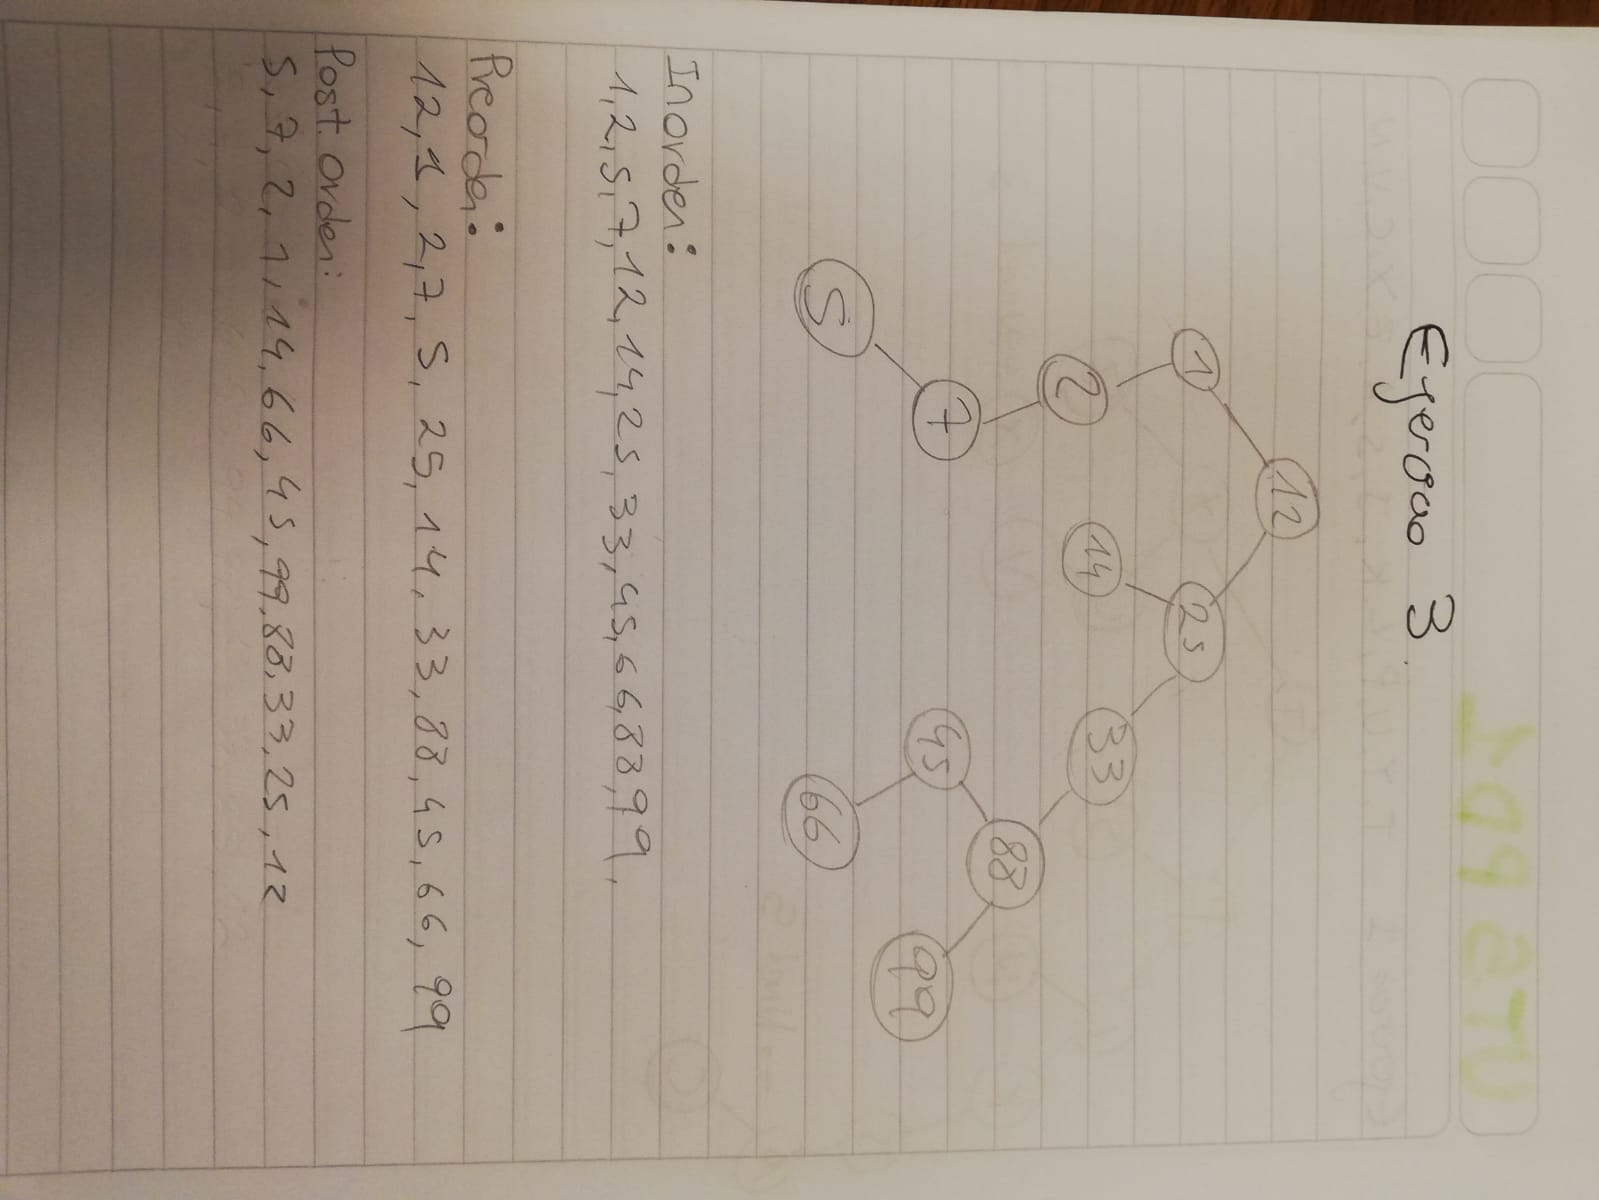 Ejercicio 3.
12
1
25
2
14
33
7
88
5
45
99
66
Inorden:
1,2,5,7,12,14,25,33,45,66,88,99,
Preorden:
12,1,2,7,5,25,14,33,88,45,66,99
Post orden:
5,7,2,1,14,66,45,99,88,33,25,12